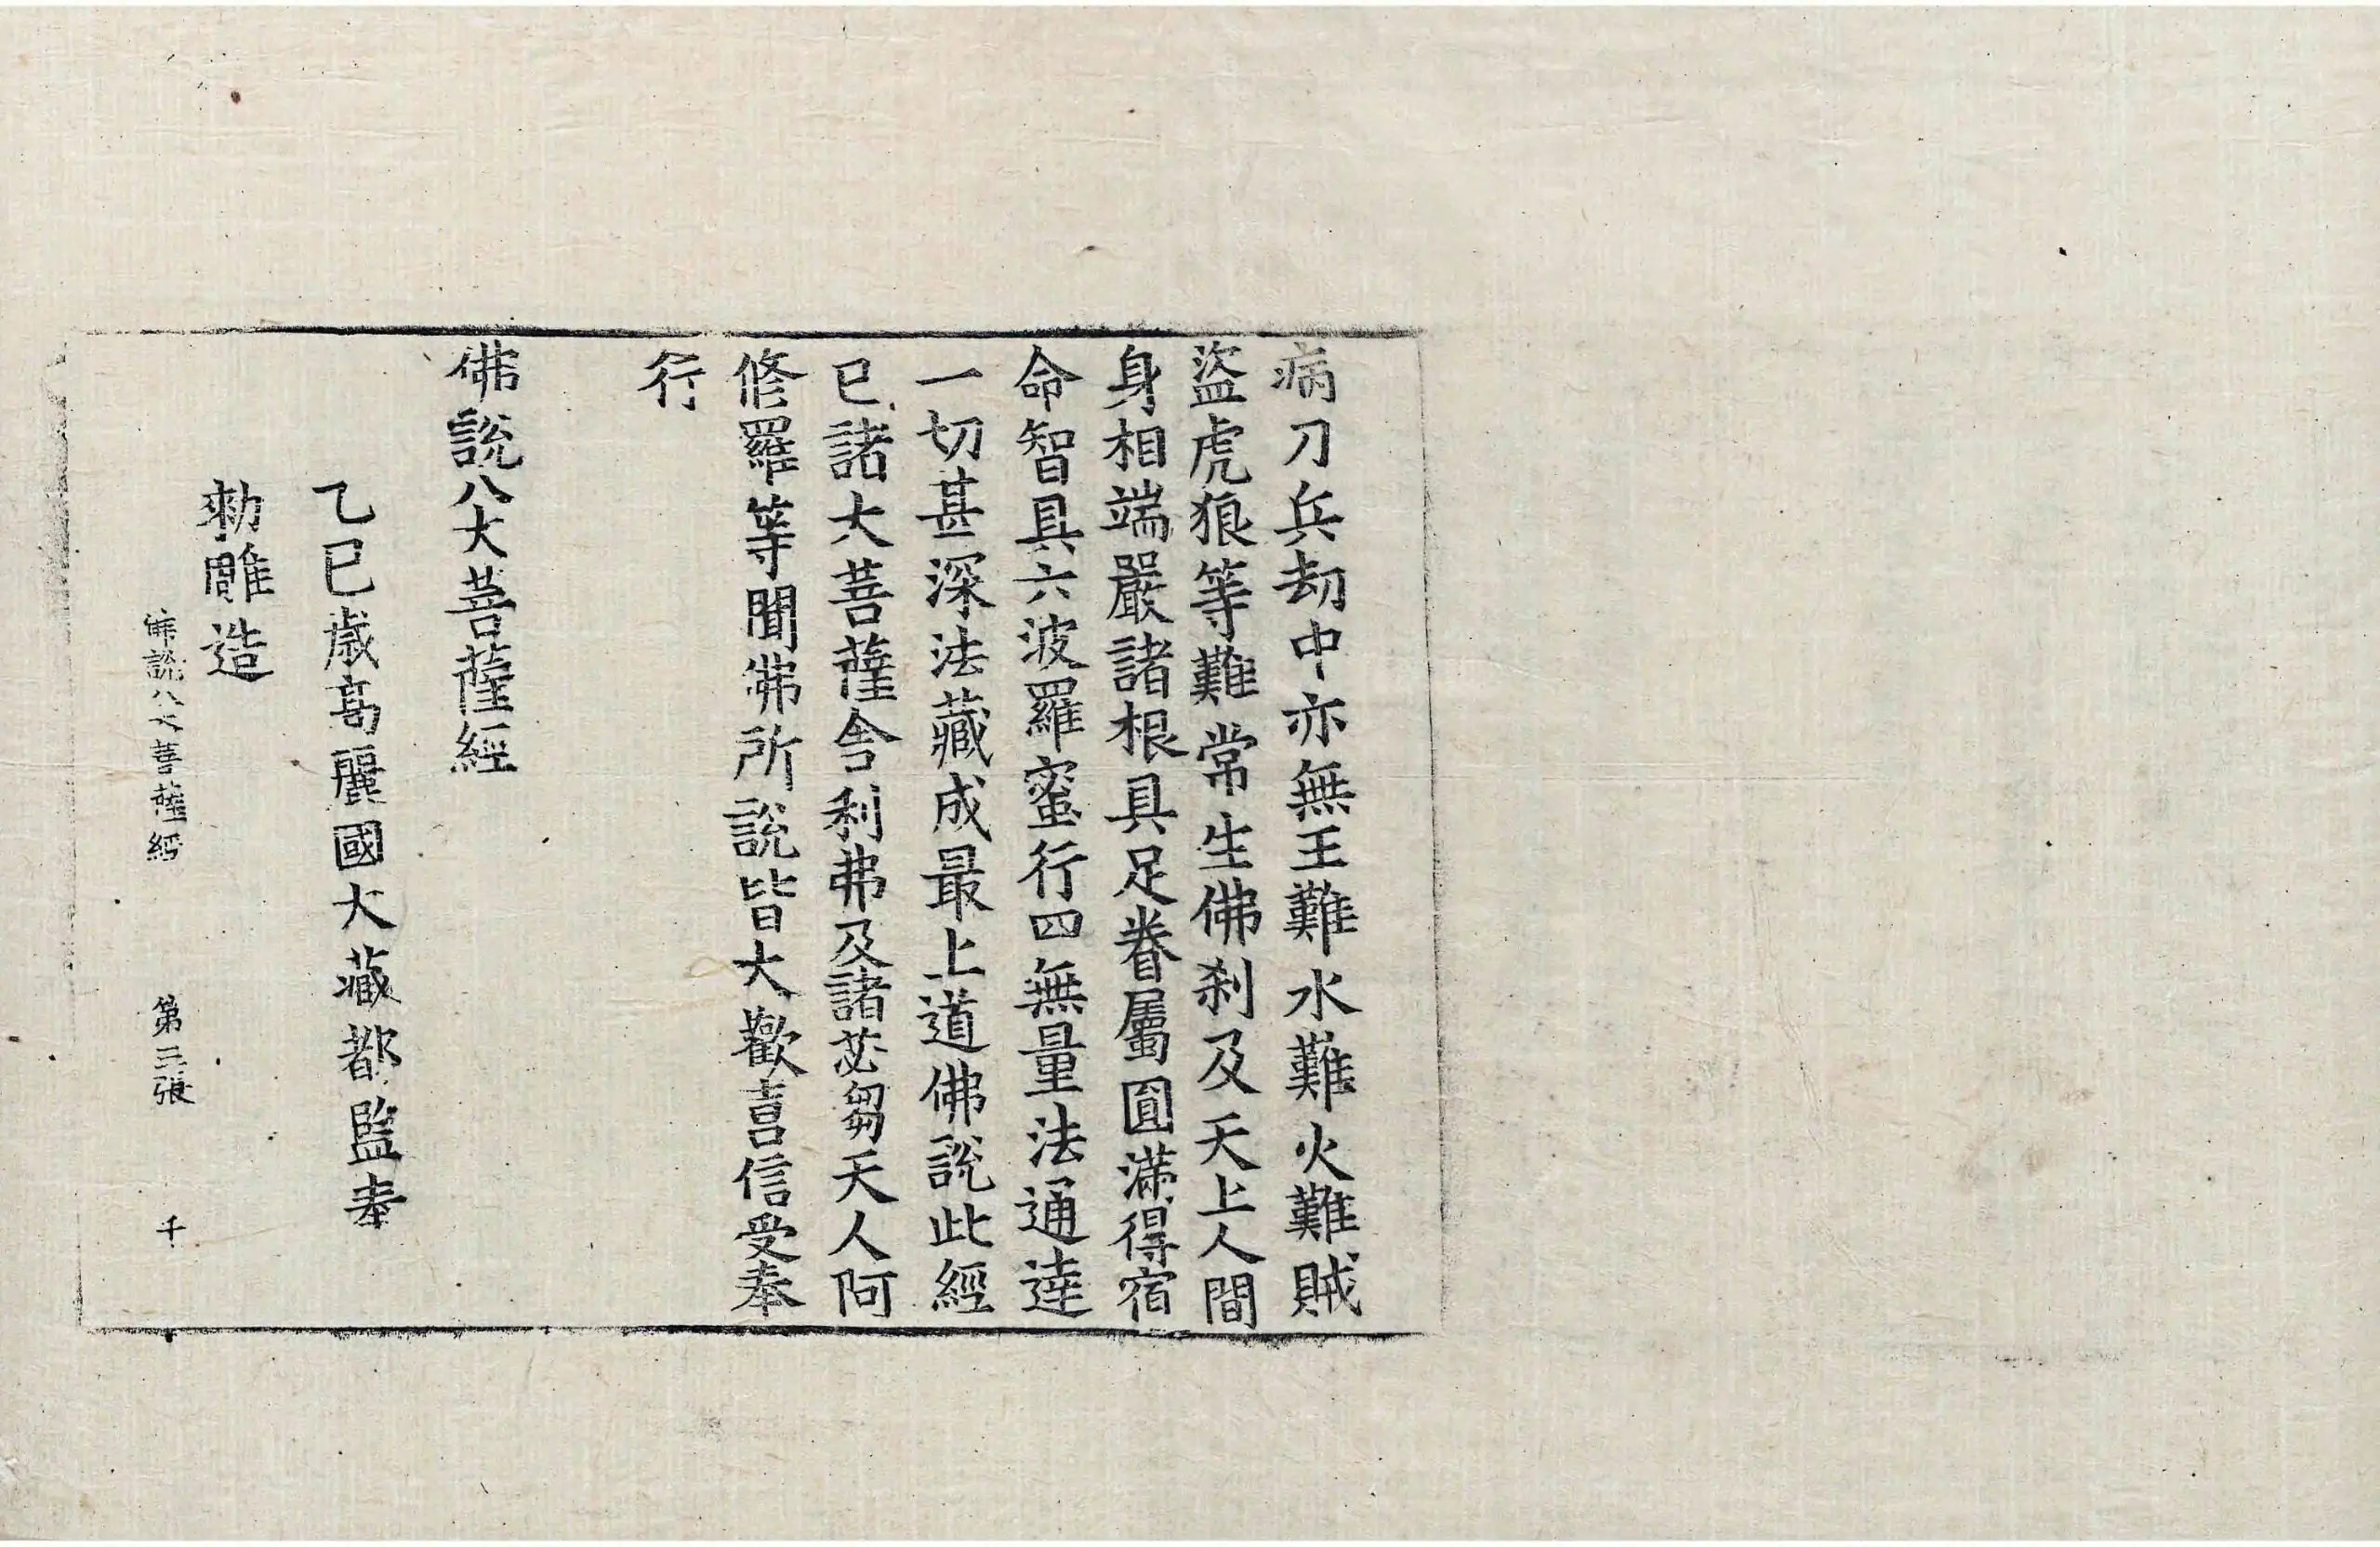 病刀兵劫中亦無王難水難火難賊
盜虎狼等難常生佛刹及天上人間
身相端嚴諸根具足眷屬圓滿得宿
命智具六波羅蜜行四無量法通達
一切甚深法藏成最上道佛說此經
已諸大菩薩舍利弗及諸苾芻天人阿
修羅等聞佛所說皆大歡喜信受奉
行
佛說八大菩薩經
乙巳歲高麗國大藏都監奉
勅雕造
佛說八大菩薩經 第三張 千